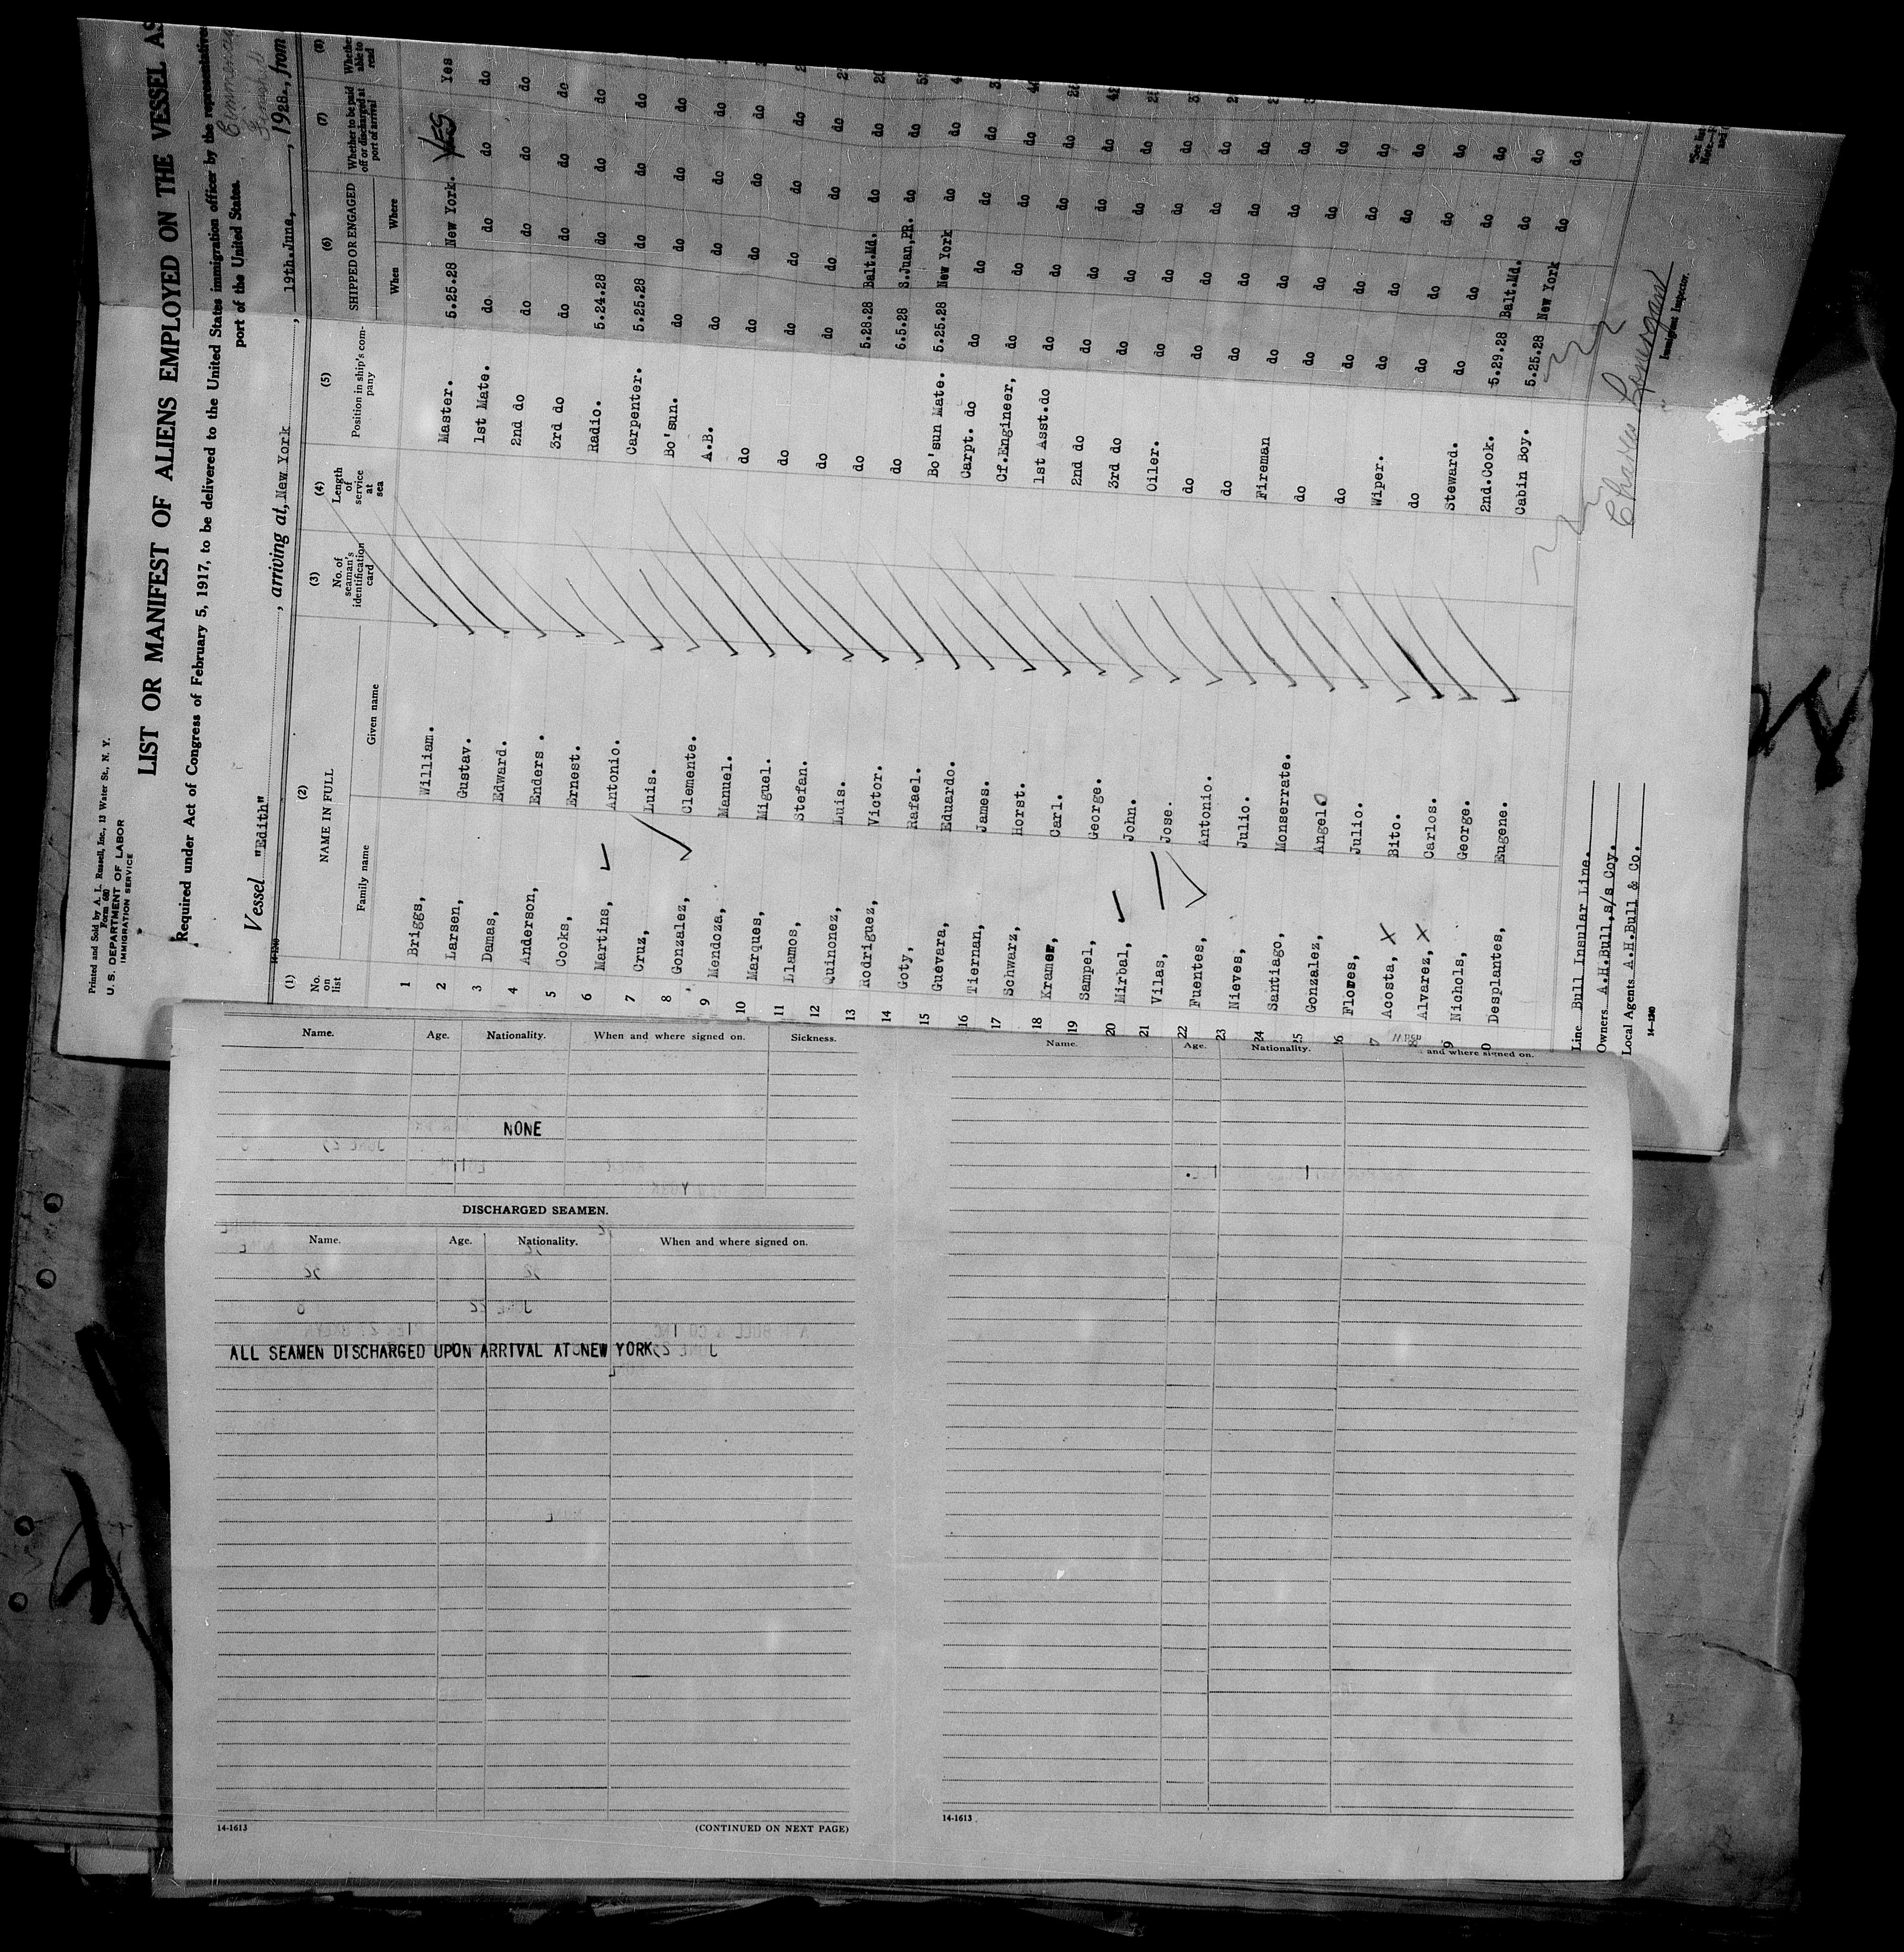 Printed and Sold by A. L. Russell, Inc., 13 Water St., N. Y.
Form 680
U. S. DEPARTMENT OF LABOR
IMMIGRATION SERVICE
LIST OR MANIFEST OF ALIENS EMPLOYED ON THE VESSEL AS
Required under Act of Congress of February 5, 1917, to be delivered to the United States immigration officer by the representatives
port of the United States.
Vessel "Edith" , arriving at, New York , 19th.June, , 1928., from
(1) (2) (3) (4) (5) (6) (7) (8)
No. on list NAME IN FULL No. of seaman's identification card Length of service at sea Position in ship's company SHIPPED OR ENGAGED Whether to be paid off or discharged at port of arrival Whether able to read
Family name Given name When Where
1 Briggs, William. Master. 5.25.28 New York. YES Yes
2 Larsen, Gustav. 1st Mate. do do do do
3 Damas, Edward. 2nd do do do do do
4 Anderson, Enders . 3rd do do do do do
5 Cooks, Ernest. Radio. 5.24.28 do do do
6 Martins, Antonio. Carpenter. 5.25.28 do do do
7 Cruz, Luis. Bo'sun. do do do do
8 Gonzalez, Clemente. A.B. do do do do
9 Mendoza, Manuel. do do do do do
10 Marques, Miguel. do do do do do
11 Llamos, Stefan. do do do do do
12 Quinonez, Luis. do 5.28.28 Balt.Md. do do
13 Rodriguez, Victor. do 6.5.28 S.Juan,PR. do do
14 Goty, Rafael. Bo'sun Mate. 5.25.28 New York do do
15 Guevara, Eduardo. Carpt. do do do do do
16 Tiernan, James. Cf.Engineer, do do do do
17 Schwarz, Horst. 1st Asst.do do do do do
18 Kramer, Carl. 2nd do do do do do
19 Sampel, George. 3rd do do do do do
20 Mirbal, John. Oiler. do do do do
21 Vilas, Jose. do do do do do
22 Fuentes, Antonio. do do do do do
23 Nieves, Julio. Fireman do do do do
24 Santiago, Monserrate. do do do do do
25 Gonzalez, Angelo do do do do do
26 Flores, Julio. Wiper. do do do do
7 Acosta, X Bito. do do do do do
8 Alvarez, X Carlos. Steward. do do do do
9 Nichols, George. 2nd.Cook. 5.29.28 Balt.Md. do do
0 Desplantes, Eugene. Cabin Boy. 5.25.28 New York do do
Line Bull Insular Line.
Owners A.H.Bull,s/s Coy.
Local Agents A.H.Bull & Co.
Immigrant Inspector.
14-1240
Name. Age. Nationality. When and where signed on. Sickness.
NONE
DISCHARGED SEAMEN.
Name. Age. Nationality. When and where signed on.
ALL SEAMEN DISCHARGED UPON ARRIVAL AT NEW YORK
14-1613 (CONTINUED ON NEXT PAGE)
Name. Age. Nationality. and where signed on.
14-1613